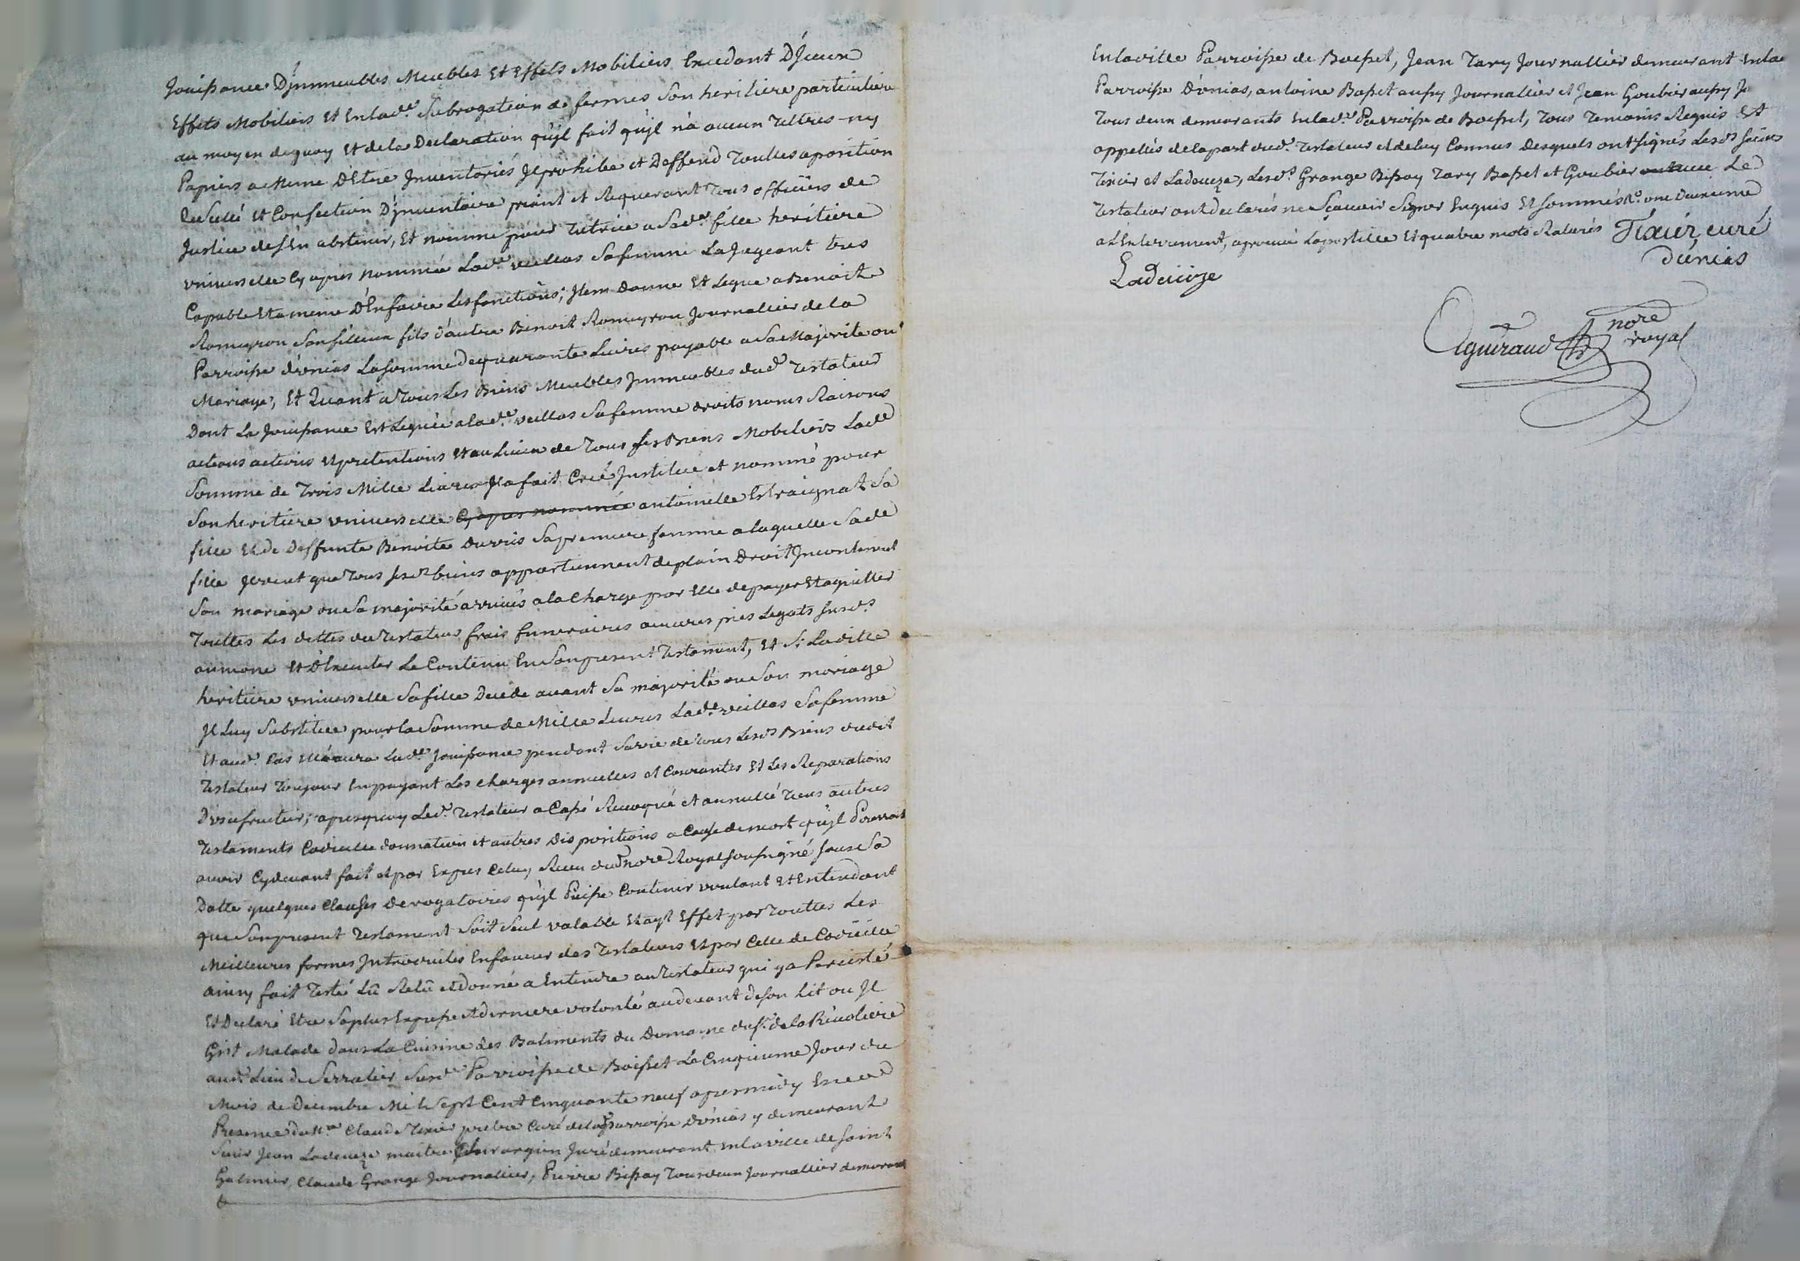 Jouissance D'jmmeubles Meubles Et Effets Mobiliers Excedant D'jceux
Effets Mobiliers Et En lad.e Subrogation de fermes Son heritiere particuliere
au moyen de quoy Et de la Declaration qu'jl fait qu'jl n'a aucun Tiltres ny
Papiers a Meme D'Etre Jnventoriés Jl prohibe et Deffend Touttes aposition
De Scellé Et Confection D'jnventaire priant et Requerant Tous officiers de
Justice de s'En abstenir, Et nomme pour Tutrice a Sad.e fille heritiere
universelle Cy apres nommée Lad.e veillas Sa femme La Jugeant tres
Capable Et a meme D'En faire Les fonctions; Jtem Donne Et Legue a Benoit
Romeyron Son filleul fils d'autre Benoit Romeyron Journallier de la
Parroisse d'énias La Somme de quarante Livres payable a Sa Majorité ou
Mariage; Et Quant a Tous Les Biens Meubles Jmmeubles dud. Testateur
Dont La Jouissance Est Leguée a lad.e veillas Sa femme droits noms Raisons
actions activis Et pretentions Et au Lieu de Tous ses Biens Mobiliers Lad.e
Somme de Trois Mille Livres Jl a fait Créé Jnstitué et nommé pour
Son heritiere universelle Cy apres nommée antoinette Estraignat Sa
fille Et de Deffunte Benoite Durris Sa premiere femme a laquelle Sad.e
fille Jl veut que Tous sesd. biens appartiennent de plain Droit Jncontinent
Son mariage ou Sa majorité arrivés a la Charge par Elle de payer Et aquitter
Touttes Les dettes du Testateur frais funeraires œuvres pies Legats Susd.s
aumone Et D'Executer Le Contenu En Son present Testament, Et Si Laditte
heritiere universelle Sa fille Decede avant Sa majorité ou Son mariage
Jl Luy Substitue pour la Somme de Mille Livres Lad.e veillas Sa femme
Et aud. Cas Elle aura Lad.e Jouissance pendant Sa vie de Tous Lesd.s Biens dudit
Testateur Toujours En payant Les charges annuelles et Courantes Et Les Reparations
D'usufructier; apres quoy Led. Testateur a Cassé Revoqué et annullé Tous autres
Testaments Codicille donnation et autres Dispositions a Cause de mort qu'jl Pourroit
avoir Cy devant fait et par Expres Celuy Recu dud. nore Royal Soussigné Sous Sa
Datte quelques Clauses Derogatoires qu'jl Puisse Contenir voulant Et Entendant
que Son present Testament Soit Seul valable Et ayt Effet par Touttes Les
Meilleures formes Jntroduites En faveur des Testateurs Et par Celle de Codicille
ainsy fait Testé Lû Relû Et donné a Entendre au Testateur qui y a Persisté
Et Declaré Etre Sa plus Expresse Et derniere volonté au devant de Son Lit ou Jl
Gist Malade dans La Cuisine des Batiments du Domaine du S.r de la Révoliere
aud. Lieu de Serralier Susd.e Parroisse de Boisset Le Cinquieme Jour du
Mois de Decembre Mil Sept Cent Cinquante neuf apres midy En
Presence de M.re Claude Texier pretre Curé de la Parroisse D'énias y demeurant
Sieur Jean Ladeveze maitre Chirurgien Juré demeurant En la ville de Saint
Galmier, Claude Grange Journallier, Pierre Bissay Tous deux Journallier demeurant
En laditte Parroisse de Boisset, Jean Tavy Journallier demeurant En lad.
Parroisse D'énias, antoine Basset aussy Journallier et Jean Goubier aussy J.
Tous deux demeurants En lad.e Parroisse de Boisset, Tous Temoins Requis Et
appellés de la part dud. Testateur Et de luy Connus desquels ont Signés Lesd.s Sieurs
Texier et Ladeveze, Lesd.s Grange Bissay Tavy Basset et Goubier Le
Testateur ont declarés ne Scavoir Signer Enquis Et Sommés R. une Deuxieme
a L'Enterrement, aprouvé La postille Et quatre mots Raturés Tixier curé
d'énias
Ladeveze
Aguiraud nore
royal